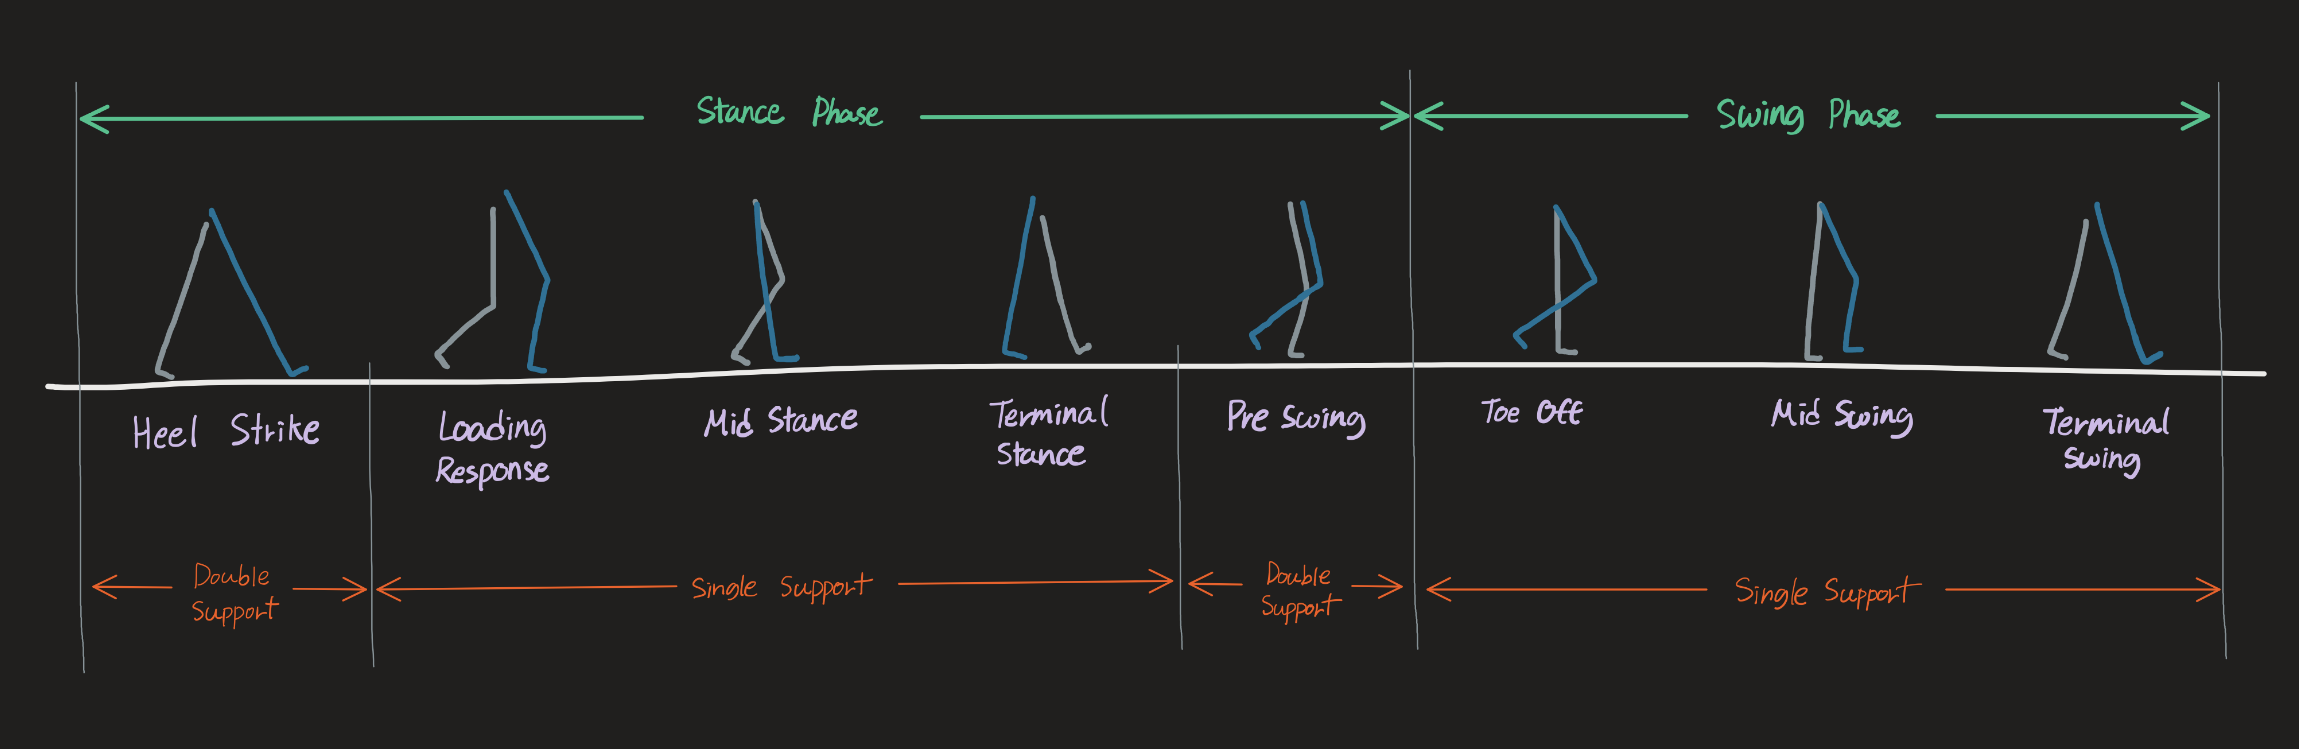 Stance Phase
Swing Phase
Heel Strike
Loading
Response
Mid Stance
Terminal
Stance
Pre Swing
Toe Off
Mid Swing
Terminal
Swing
Double
Support
Single Support
Double
Support
Single Support